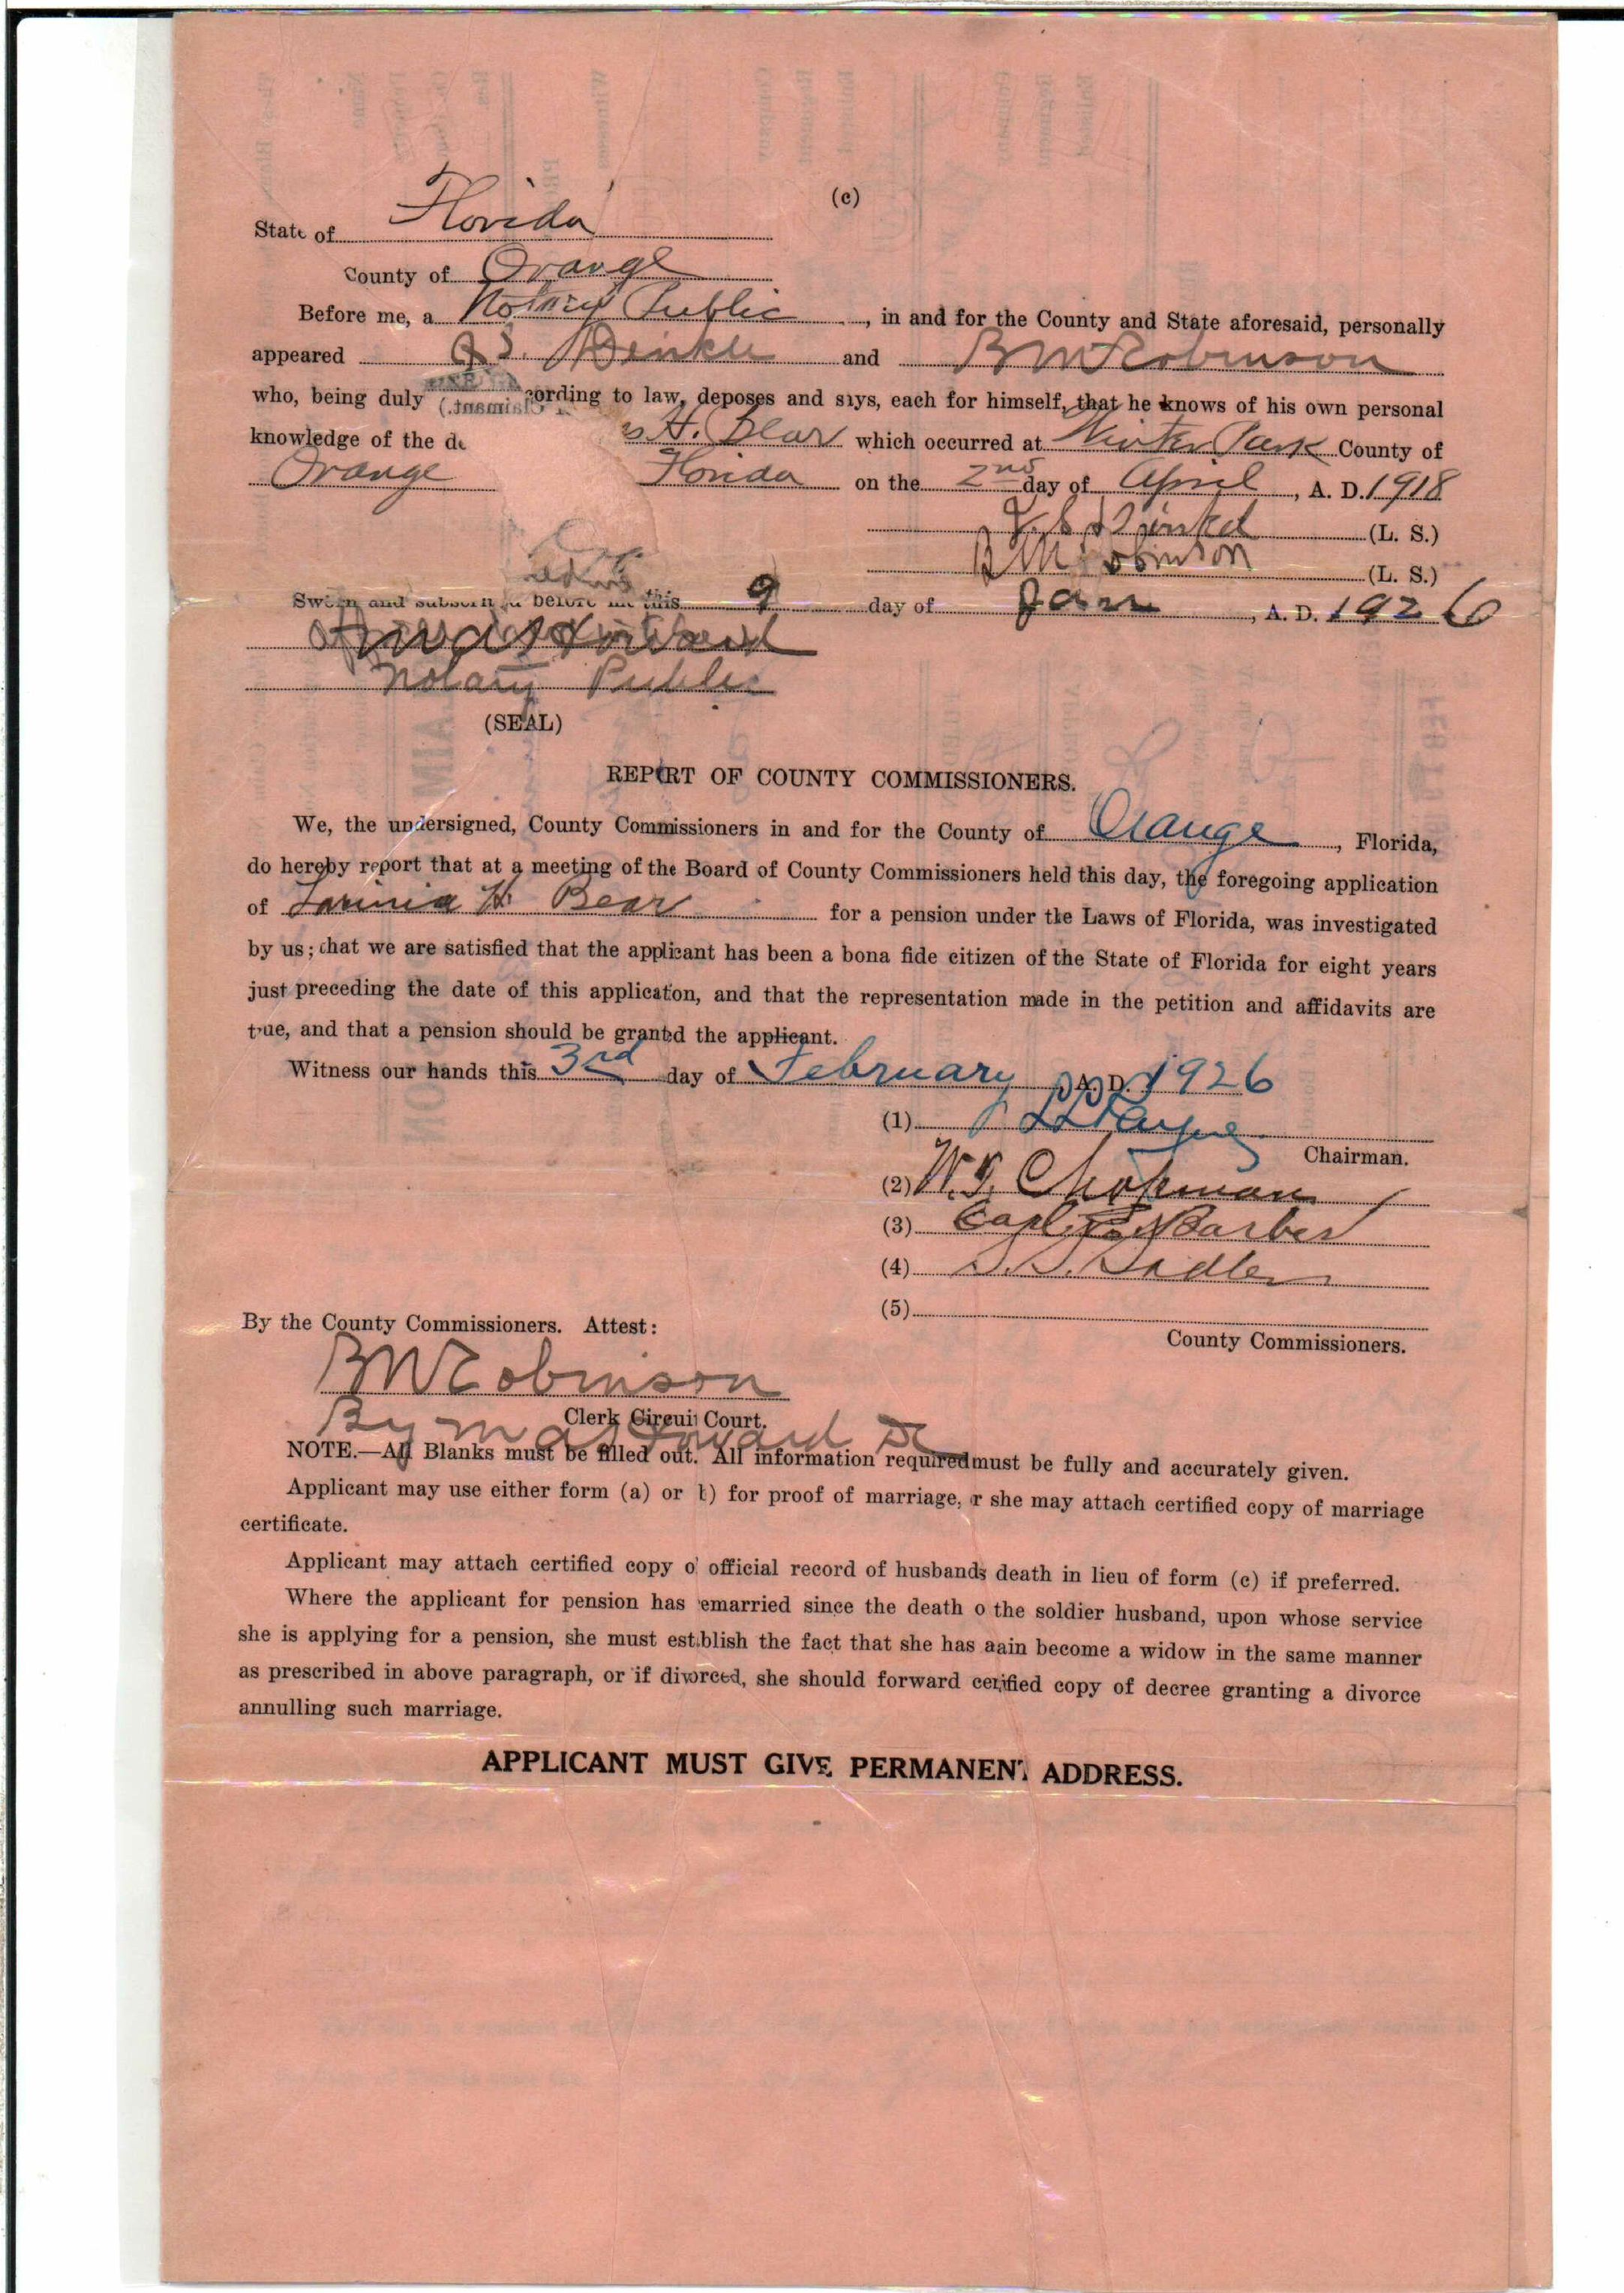 (c)
State of Florida
County of Orange
Before me, a Notary Public, in and for the County and State aforesaid, personally
appeared and B M Robinson
who, being duly cording to law, deposes and says, each for himself, that he knows of his own personal
knowledge of the de s H. Bear which occurred at Winter Park County of
Orange Florida on the 2nd day of April, A. D. 1918
(L. S.)
B M Robinson (L. S.)
Sworn and subscribed before me this 9 day of Jan, A. D. 1926
Notary Public
(SEAL)
REPORT OF COUNTY COMMISSIONERS.
We, the undersigned, County Commissioners in and for the County of Orange, Florida,
do hereby report that at a meeting of the Board of County Commissioners held this day, the foregoing application
of H. Bear for a pension under the Laws of Florida, was investigated
by us; that we are satisfied that the applicant has been a bona fide citizen of the State of Florida for eight years
just preceding the date of this applicaton, and that the representation made in the petition and affidavits are
true, and that a pension should be grantd the applicant.
Witness our hands this 3rd day of February A. D. 1926
(1) L L Payne
Chairman.
(2) W. T. Chapman
(3) Barber
(4) S. S. Sadler
(5)
County Commissioners.
By the County Commissioners. Attest:
B M Robinson
Clerk Circuit Court.
By M A Howard DC
NOTE.—All Blanks must be filled out. All information required must be fully and accurately given.
Applicant may use either form (a) or b) for proof of marriage, r she may attach certified copy of marriage
certificate.
Applicant may attach certified copy o official record of husbands death in lieu of form (c) if preferred.
Where the applicant for pension has emarried since the death o the soldier husband, upon whose service
she is applying for a pension, she must establish the fact that she has aain become a widow in the same manner
as prescribed in above paragraph, or if divorced, she should forward cerified copy of decree granting a divorce
annulling such marriage.
APPLICANT MUST GIVE PERMANENT ADDRESS.